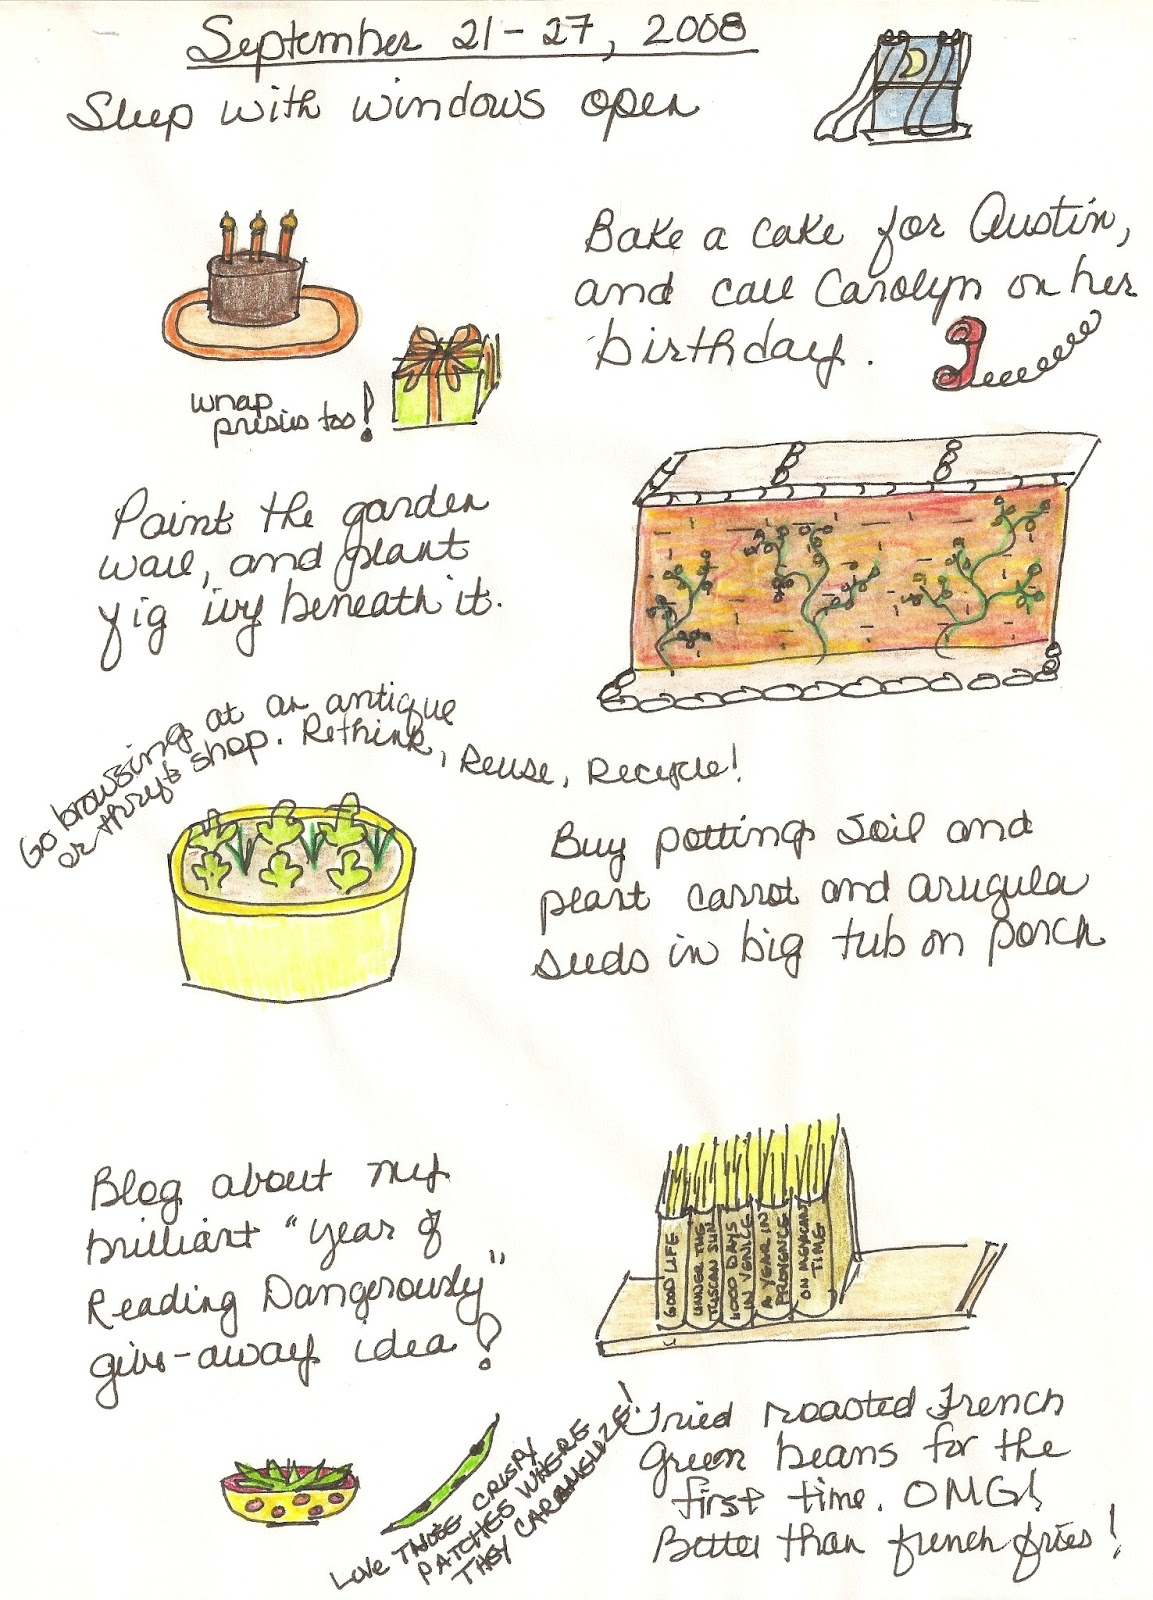 September 21-27, 2008
Sleep with windows open
Bake a cake for Austin,
and call Carolyn on her
birthday.
wrap
presies too!
Paint the garden
wall, and plant
fig ivy beneath it.
Go browsing at an antique
or thrift shop. Rethink, Reuse, Recycle!
Buy potting soil and
plant carrot and arugula
seeds in big tub on porch
Blog about my
brilliant "Year of
Reading Dangerously"
give-away idea!
GOOD LIFE
UNDER THE
TUSCAN SUN
1000 DAYS
IN VENICE
A YEAR IN
PROVENCE
ON MEXICAN
TIME
Tried roasted French
Green beans for the
first time. OMG!
Better than french fries!
LOVE THOSE CRISPY
PATCHES WHERE
THEY CARAMELIZE!